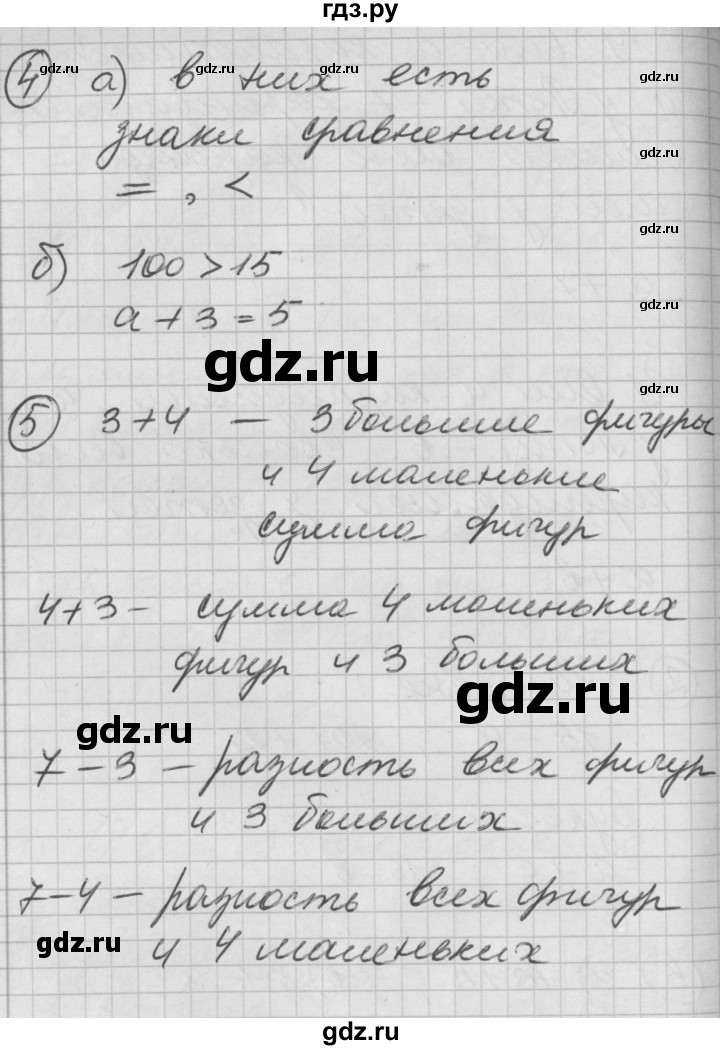 гдз.ру
gdz.ru
gdz.ru
④ а) в них есть
gdz.ru
знаки сравнения
gdz.ru
= , <
gdz.ru
б) 100 > 15
gdz.ru
а + 3 = 5
gdz.ru
gdz.ru
⑤ 3+4 — 3 большие фигуры
и 4 маленькие
сумма фигур
4+3 - сумма 4 маленьких
фигур и 3 больших
gdz.ru
gdz.ru
7 - 3 — разность всех фигур
и 3 больших
7-4 — разность всех фигур
gdz.ru
и 4 маленьких
gdz.ru